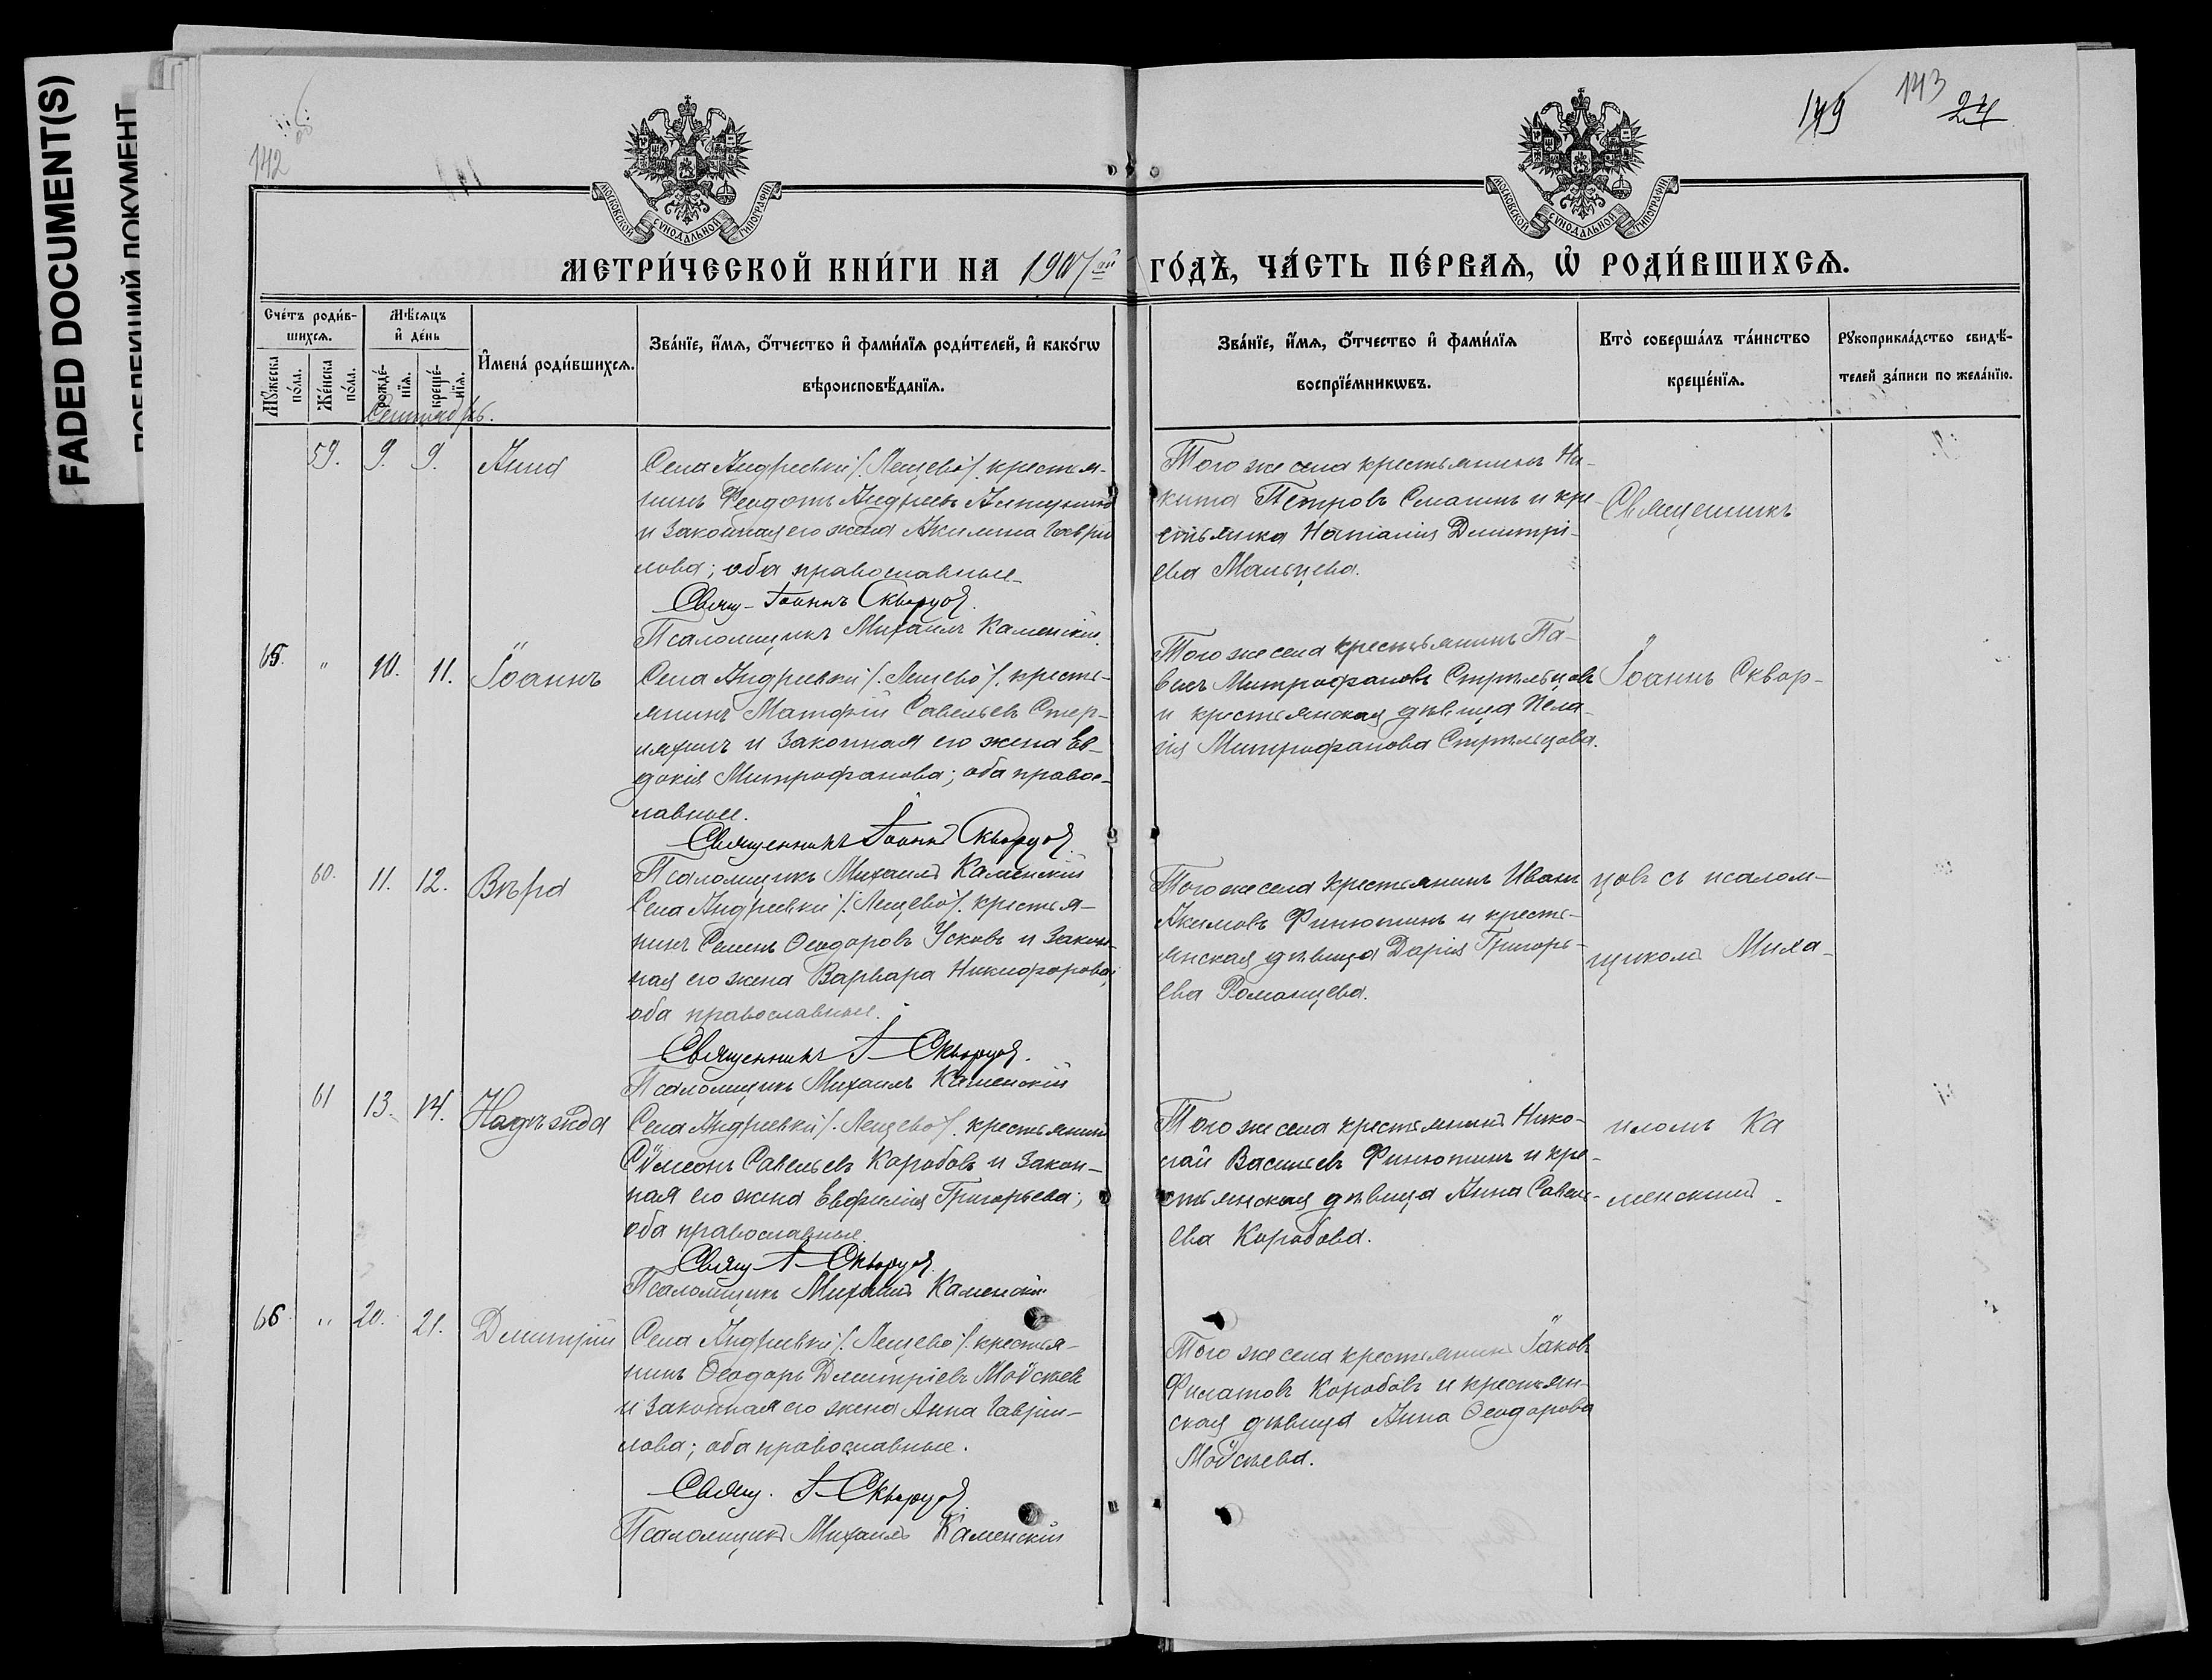 FADED DOCUMENT(S)
142
149
143
27
МОСКОВСКОЙ СѴНОДАЛЬНОЙ ТИПОГРАФІИ
МОСКОВСКОЙ СѴНОДАЛЬНОЙ ТИПОГРАФІИ
МЕТРИ́ЧЕСКОЙ КНИ́ГИ НА 1907ой ГО́ДЪ, ЧА́СТЬ ПЕ́РВАѦ, Ѡ҆ РОДИ́ВШИХСѦ.
Сче́тъ роди́в-
шихсѧ.
Мꙋ́жеска по́ла.
Же́нска по́ла.
Мѣ́сѧцъ
и҆ де́нь
рожде́-
нїѧ.
креще́-
нїѧ.
И҆мена̀ роди́вшихсѧ.
Зва́нїе, и҆́мѧ, ѻ҆́тчество и҆ фами́лїѧ роди́телей, и҆ како́гѡ
вѣроисповѣ́данїѧ.
Зва́нїе, и҆́мѧ, ѻ҆́тчество и҆ фами́лїѧ
воспрїе́мникѡвъ.
Кто̀ соверша́лъ та́инство
креще́нїѧ.
Рꙋкоприкла́дство свидѣ́-
телей за́писи по жела́нїю.
Сентябрь.
59. 9. 9. Анна
Села Андреевки /:Лещево/: крестья-
нинъ Феодотъ Андреевъ
и законная его жена Акилина Гаври
лова; оба православные
Свящ- Іоаннъ Скворцовъ.
Псаломщикъ Михаилъ Каменскій.
Того же села крестьянинъ Ни-
кита Петровъ Смагинъ и кре-
стьянка Наталія Димитрі-
ева Мальцева.
Священникъ
65. " 10. 11. Іоаннъ
Села Андреевки /:Лещево/: кресть-
янинъ Матфій Савельевъ Стер-
ляхинъ и законная его жена Ев-
докія Митрофанова; оба правос-
лавные.
Священникъ Іоаннъ Скворцовъ.
Псаломщикъ Михаилъ Каменскій
Того же села крестьянинъ Па-
велъ Митрофановъ Стрѣльцовъ
и крестьянская дѣвица Пела-
гія Митрофанова Стрѣльцова.
Іоаннъ Сквор-
60. 11. 12. Вѣра
Села Андреевки /:Лещево/: крестья-
нинъ Семенъ Ѳеодоровъ Усковъ и закон-
ная его жена Варвара Никифорова;
оба православные.
Священникъ І Скворцовъ.
Псаломщикъ Михаилъ Каменскій
Того же села крестьянинъ Иванъ
Акимовъ Финютинъ и кресть-
янская дѣвица Дарія Григорь-
ева Романцева.
цовъ съ псалом-
щикомъ Миха-
61 13. 14. Надѣжда
Села Андреевки /:Лещево/: крестьянинъ
Сѷмеонъ Савельевъ Коробовъ и закон-
ная его жена Евфимія Григорьева;
оба православные.
Свящ І Скворцовъ.
Псаломщикъ Михаилъ Каменскій
Того же села крестьянинъ Нико-
лай Васильевъ Финютинъ и кре-
стьянская дѣвица Анна Савель-
ева Коробова.
иломъ Ка
менскимъ.
66 " 20. 21. Димитрій
Села Андреевки /:Лещево/: крестья-
нинъ Ѳеодоръ Димитріевъ Моѷсеевъ
и законная его жена Анна Гаври-
лова; оба православные.
Свящ. І Скворцовъ.
Псаломщикъ Михаилъ Каменскій
Того же села крестьянинъ Іаковъ
Филатовъ Коробовъ и крестьян-
ская дѣвица Анна Ѳеодорова
Моѷсеева.